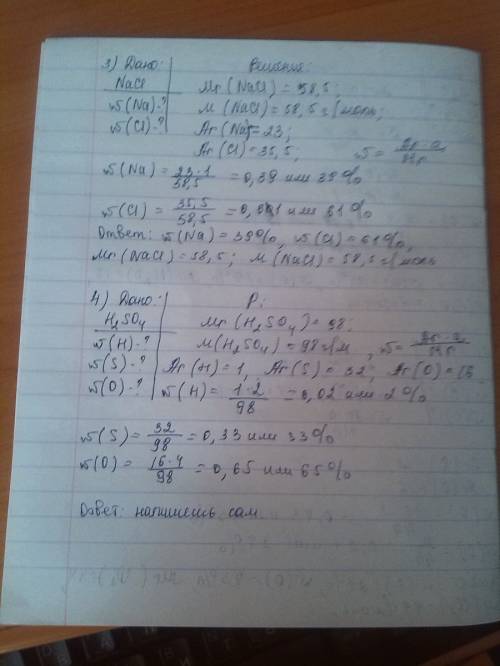 3) Дано: Решение:
NaCl Mr(NaCl) = 58,5;
w(Na)-? M(NaCl) = 58,5 г/моль;
w(Cl)-? Ar(Na) = 23;
Ar(Cl) = 35,5; w = Ar·n/Mr
w(Na) = 23·1/58,5 = 0,39 или 39%
w(Cl) = 35,5/58,5 = 0,61 или 61%
Ответ: w(Na) = 39%, w(Cl) = 61%,
Mr(NaCl) = 58,5; M(NaCl) = 58,5 г/моль
4) Дано: Р:
H₂SO₄ Mr(H₂SO₄) = 98;
w(H)-? M(H₂SO₄) = 98 г/м, w = Ar·n/Mr
w(S)-? Ar(H) = 1, Ar(S) = 32, Ar(O) = 16
w(O)-? w(H) = 1·2/98 = 0,02 или 2%
w(S) = 32/98 = 0,33 или 33%
w(O) = 16·4/98 = 0,65 или 65%
Ответ: напишешь сам.